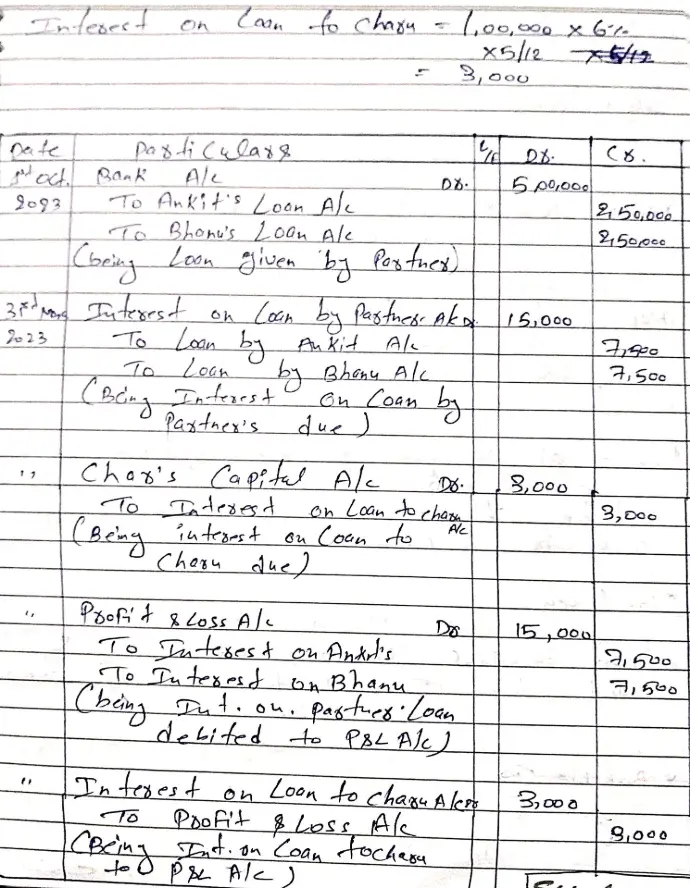 Interest on Loan to Charu = 1,00,000 x 6%
x5/12
= 3,000
Date Particulars L/F Dr. Cr.
Oct. Bank A/c Dr. 5,00,000
2023 To Ankit's Loan A/c 2,50,000
To Bhanu's Loan A/c 2,50,000
(being Loan given by Partner)
31st Mar Interest on Loan by Partner A/c Dr 15,000
2023 To Loan by Ankit A/c 7,500
To Loan by Bhanu A/c 7,500
(Being Interest on Loan by
Partner's due)
,, Char's Capital A/c Dr. 3,000
To Interest on Loan to charu A/c 3,000
(Being interest on Loan to
Charu due)
,, Profit & Loss A/c Dr 15,000
To Interest on Ankit's 7,500
To Interest on Bhanu 7,500
(being Int. on. partner. Loan
debited to P&L A/c)
,, Interest on Loan to charu A/c Dr 3,000
To Profit & Loss A/c 3,000
(Being Int. on Loan to charu
to P&L A/c)